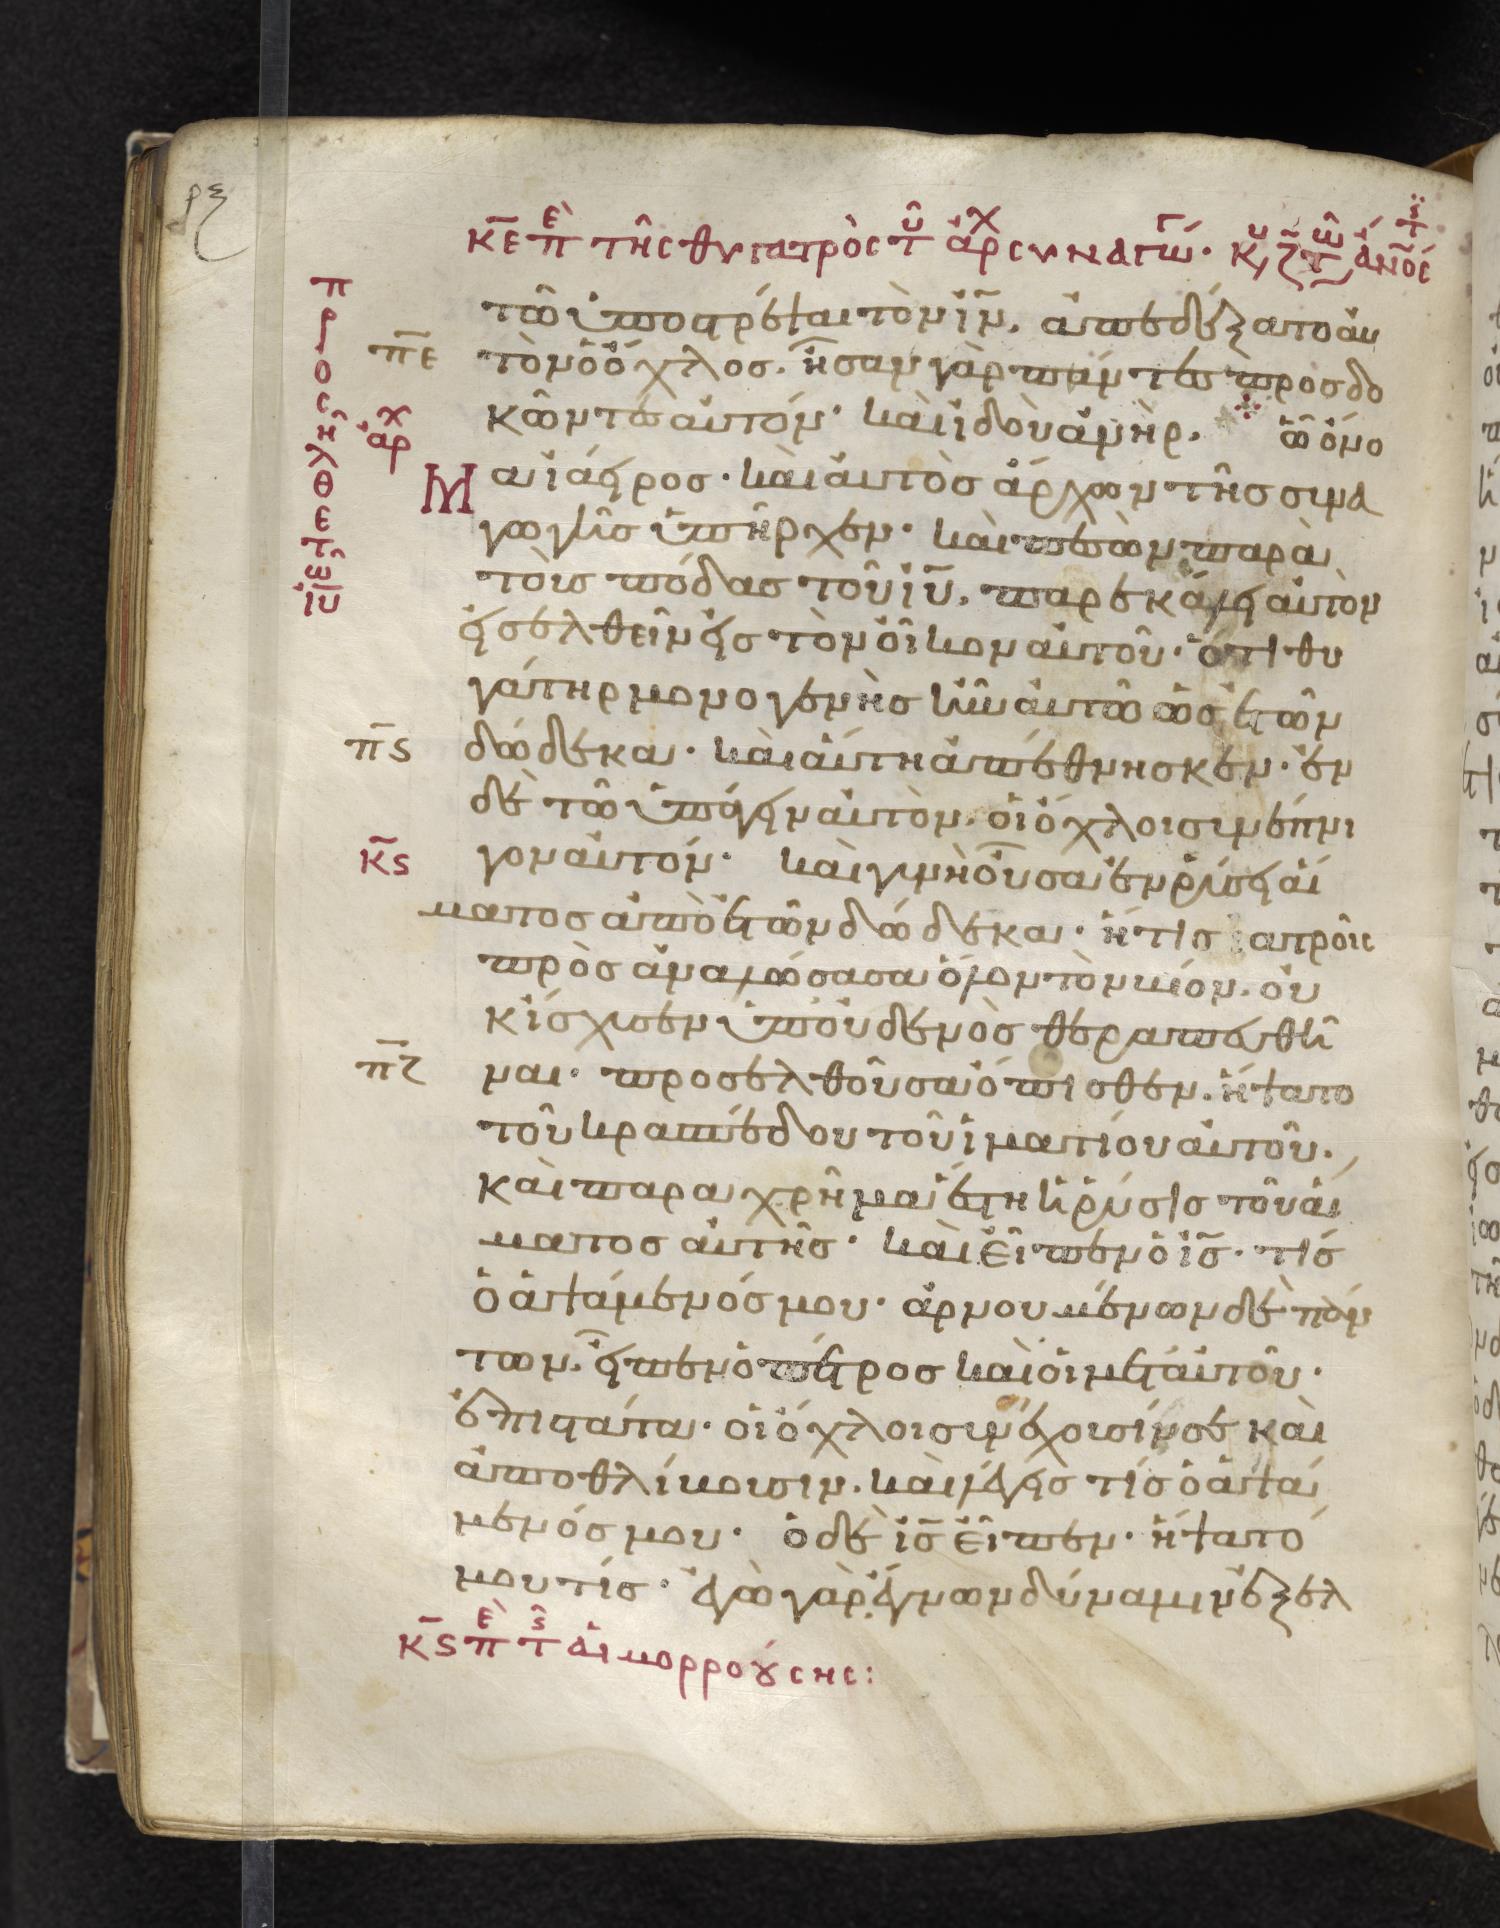 ρξ
κε επι της θυγατρος του αρχ συναγωγ· κυ ζ των ανος
τῶ ὑποστρέψαι τὸν ἰν̄, ἀπεδέξατο αὐ
πε τὸν ὁ ὄχλος· ἦσαν γὰρ πάντες προσδο
κῶντες αὐτόν· καὶ ἰδοὺ ἀνὴρ, ὧ ὄνο
αρχ
μα ἰάειρος· καὶ αὐτὸς ἄρχων τῆς συνα
γωγῆς ὑπῆρχεν· καὶ πεσὼν παρὰ
τοὺς πόδας τοῦ ἰῡ, παρεκάλει αὐτὸν
εἰσελθεῖν εἰς τὸν οἶκον αὐτοῦ· ὅτι θυ
γάτηρ μονογενὴς ἦν αὐτῶ ὡς ἐτῶν
πϛ δώδεκα· καὶ αὕτη ἀπέθνησκεν· ἐν
δὲ τῶ ὑπάγειν αὐτὸν, οἱ ὄχλοι συνέπνι
κϛ γον αὐτόν· καὶ γυνὴ οὖσα ἐν ῥύσει αἵ
ματος ἀπὸ ἐτῶν δώδεκα· ἥτις ἰατροῖς
προσαναλώσασα ὅλον τὸν βίον, οὐ
κ ἴσχυσεν ὑπ' οὐδενὸς θεραπευθῆ
πζ ναι· προσελθοῦσα ὄπισθεν, ἥψατο
τοῦ κρασπέδου τοῦ ἱματίου αὐτοῦ.
καὶ παραχρῆμα ἔστη ἡ ῥύσις τοῦ αἵ
ματος αὐτῆς· καὶ εἶπεν ὁ ἰς̄· τίς
ὁ ἁψάμενός μου· ἀρνουμένων δὲ πάν
των, εἶπεν ὁ πέτρος καὶ οἱ μετ' αὐτοῦ·
ἐπιστάτα· οἱ ὄχλοι συνέχουσίν σε καὶ
ἀποθλίβουσιν, καὶ λέγεις τίς ὁ ἁψά
μενός μου· ὁ δὲ ἰς̄ εἶπεν· ἥψατό
μου τίς· ἐγὼ γὰρ ἔγνων δύναμιν ἐξελ
κϛ επι τς αἱμορρούσης: